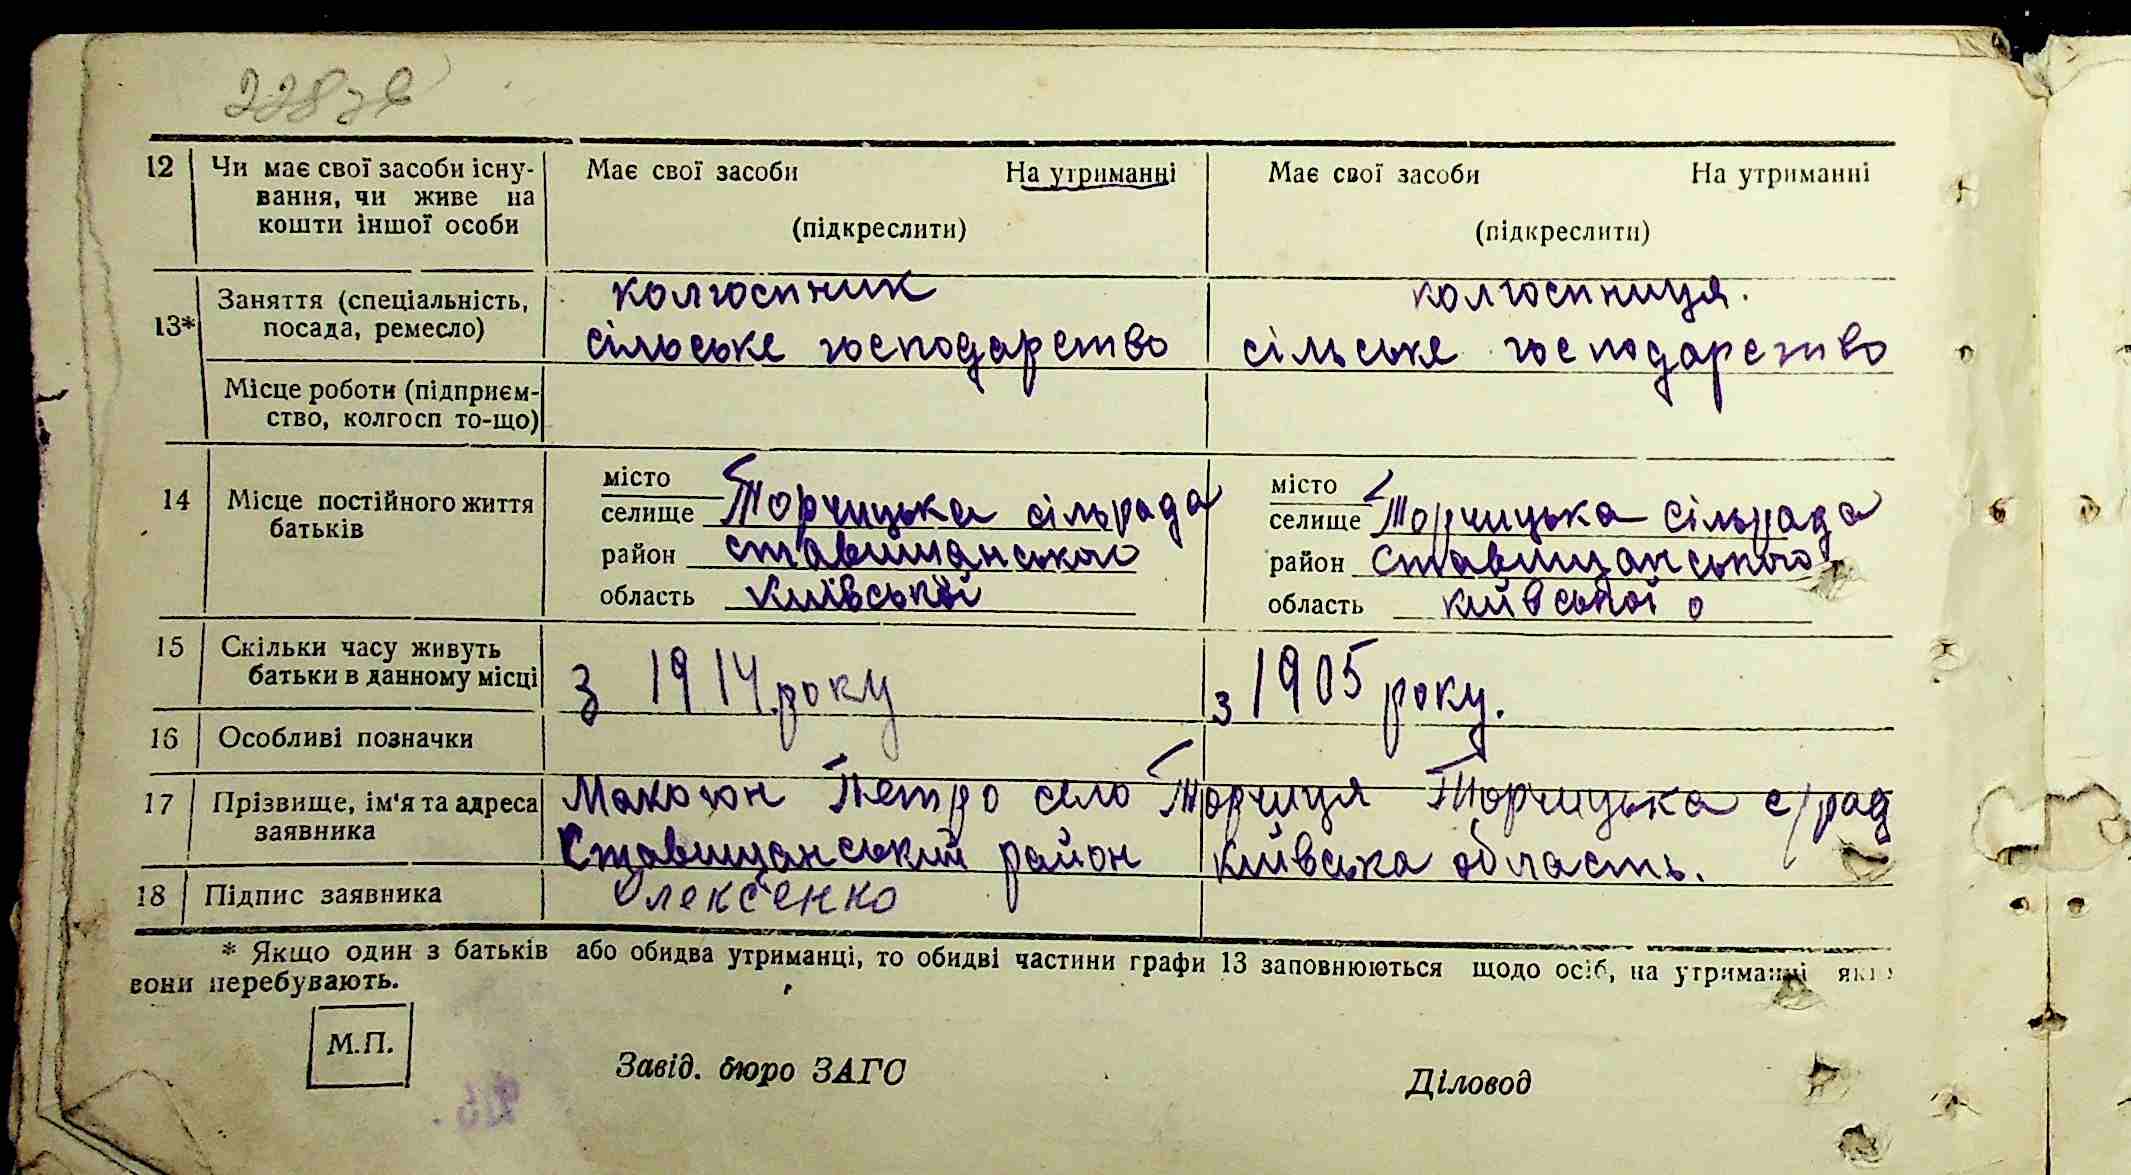 228 зв
12 Чи має свої засоби існу- Має свої засоби На утриманні Має свої засоби На утриманні
вання, чи живе на
кошти іншої особи (підкреслити) (підкреслити)
13* Заняття (спеціальність, колгоспник колгоспниця.
посада, ремесло) сільське господарство сільське господарство
Місце роботи (підприєм-
ство, колгосп то-що)
14 Місце постійного життя місто місто
батьків селище Торчицька сільрада селище Торчицька сільрада
район Ставищанського район Ставищанського
область Київської область Київської о
15 Скільки часу живуть
батьки в данному місці з 1914 року з 1905 року.
16 Особливі позначки
17 Прізвище, ім'я та адреса Макогон Петро село Торчиця Торчицька с/рад
заявника Ставищанський район Київська область.
18 Підпис заявника Олексенко
* Якщо один з батьків або обидва утриманці, то обидві частини графи 13 заповнюються щодо осіб, на утриманні яких
вони перебувають.
М.П.
Завід. бюро ЗАГС Діловод